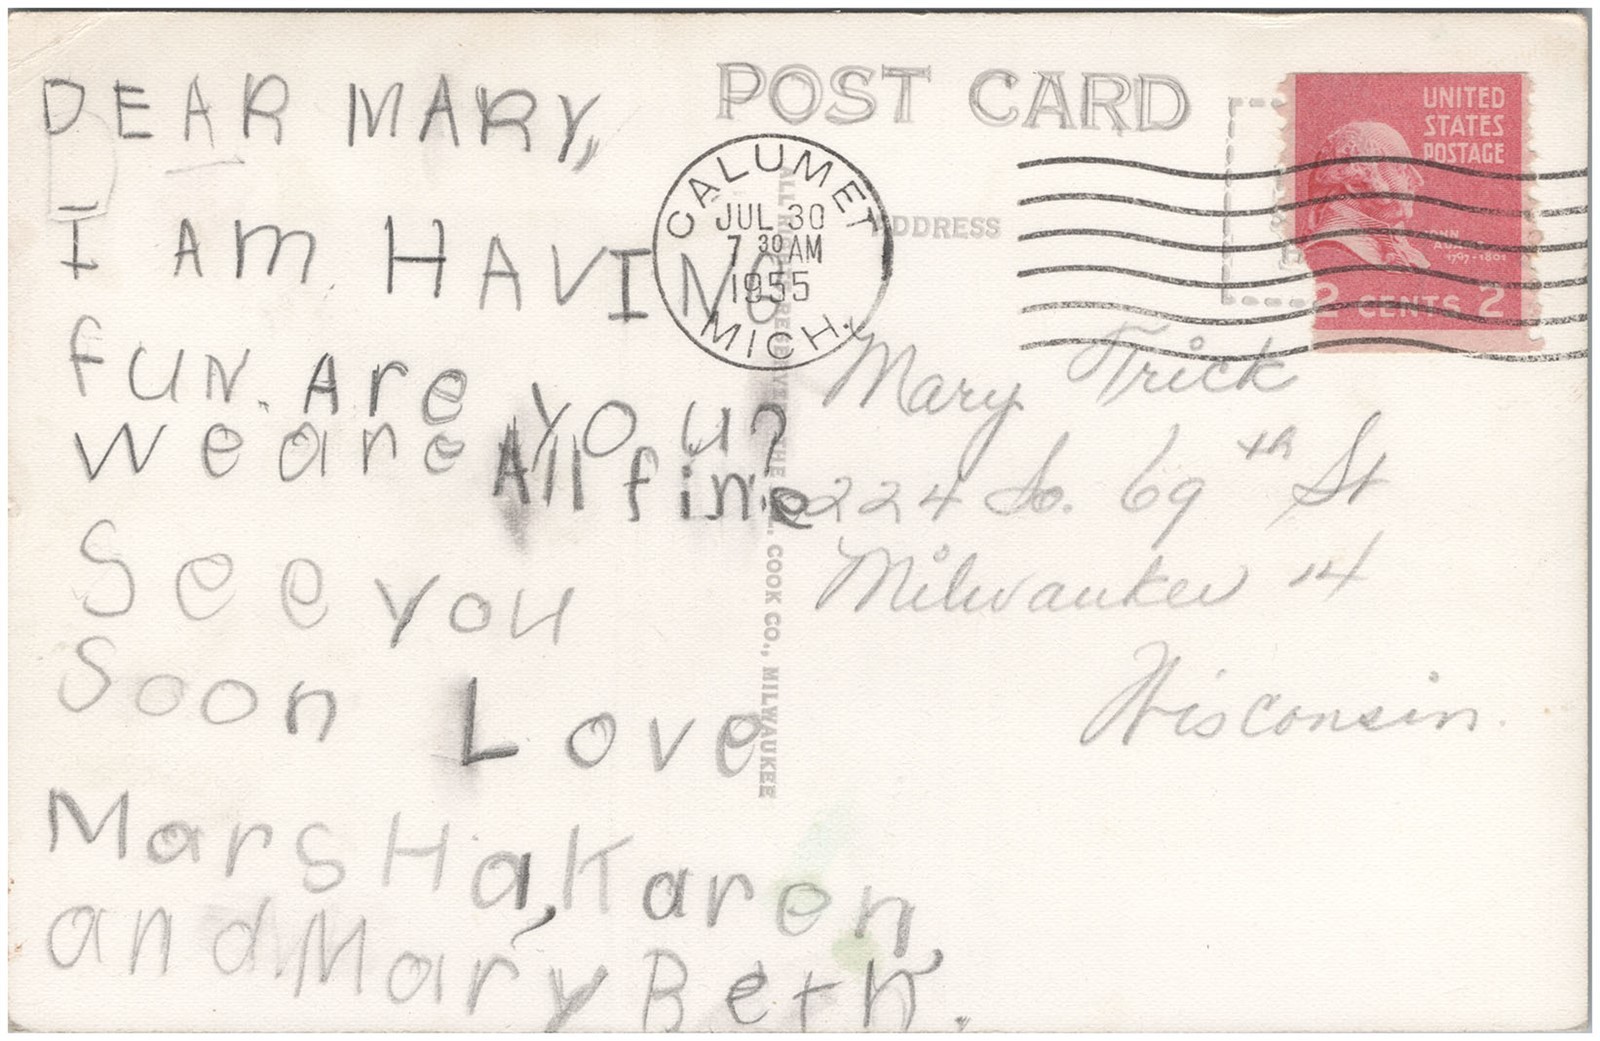 DEAR MARY,
I AM HAVING
fUN. Are YOU?
We are All fine
See you
Soon Love
MarsHa, Karen,
and Mary Beth.
POST CARD
CALUMET
JUL 30
7 30 AM
1955
MICH.
ADDRESS
UNITED
STATES
POSTAGE
JOHN
ADAMS
1797-1801
2 CENTS 2
Mary Trick
224 So. 69th St
Milwaukee 14
Wisconsin.
COOK CO., MILWAUKEE